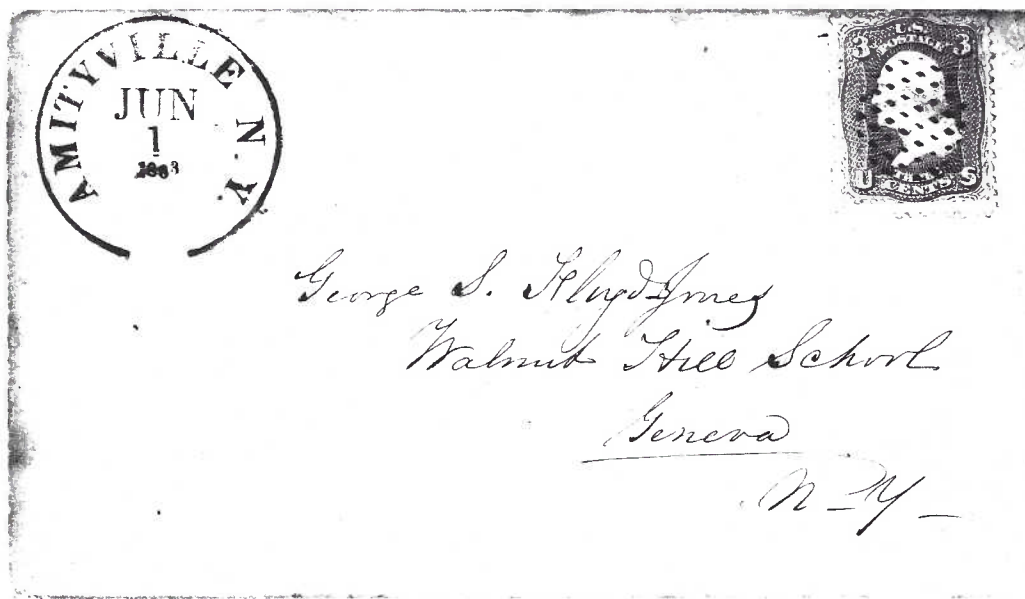 AMITYVILLE N.Y.
JUN
1
1863
U.S.
POSTAGE
3 3
U S
CENTS
George S. Floyd-Jones
Walnut Hill School
Geneva
N-Y-